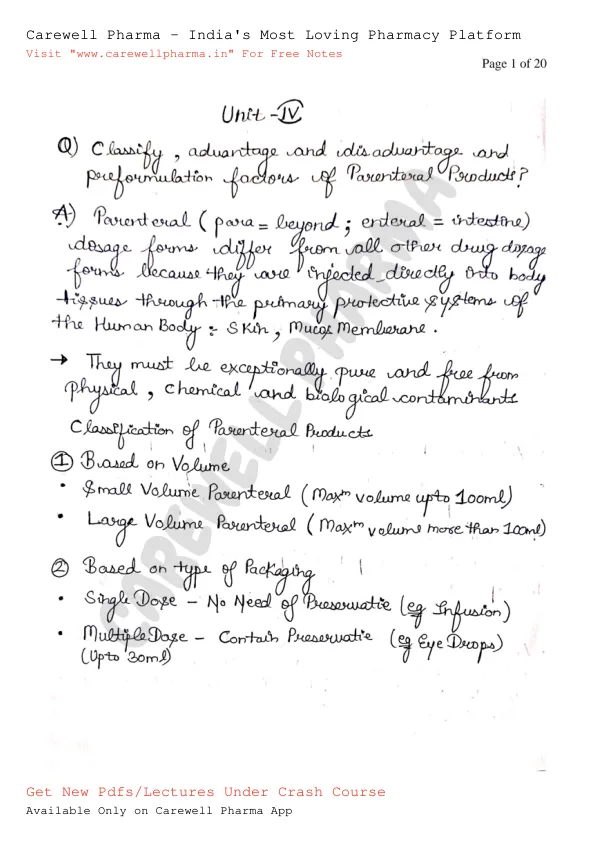 Carewell Pharma – India's Most Loving Pharmacy Platform
Visit "www.carewellpharma.in" For Free Notes
Page 1 of 20
Unit - IV
Q) Classify, advantage and disadvantage and
preformulation factors of Parenteral Products?
A) Parenteral (para = beyond ; enteral = intestine)
dosage forms differ from all other drug dosage
forms because they are injected directly into body
tissues through the primary protective systems of
the Human Body : Skin, Mucos Memberane.
→ They must be exceptionally pure and free from
physical, chemical and biological contaminants
Classification of Parenteral Products
① Based on Volume
• Small Volume Parenteral (Maxm volume upto 100ml)
• Large Volume Parenteral (Maxm volume more than 100ml)
② Based on type of Packaging
• Single Dose - No Need of Preservatie (eg Infusion)
• Multiple Dose - Contain Preservatie (eg Eye Drops)
(Upto 30ml)
CAREWELL PHARMA
Get New Pdfs/Lectures Under Crash Course
Available Only on Carewell Pharma App